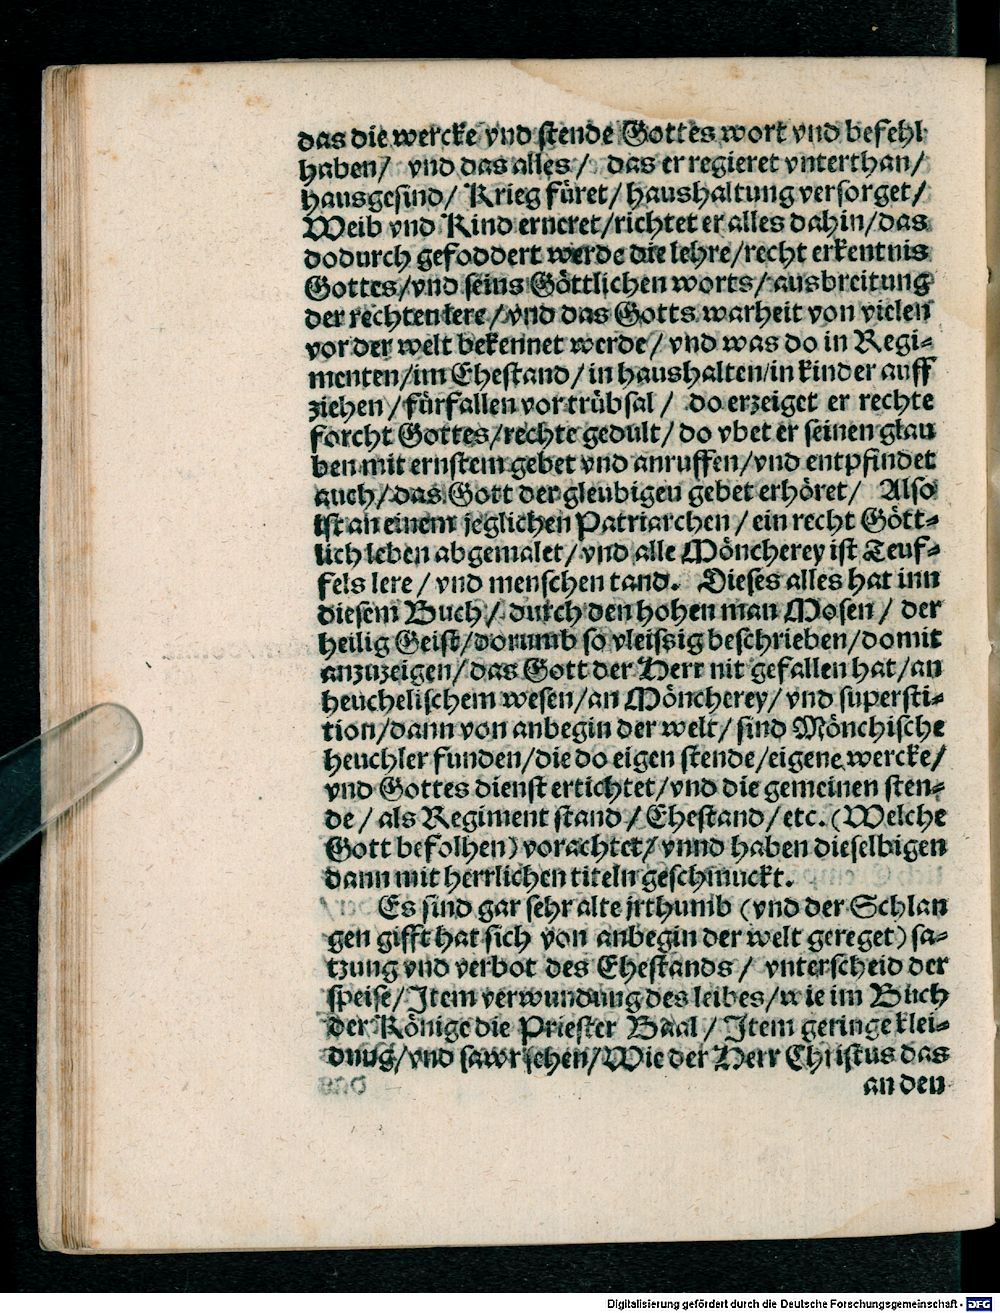 das die wercke vnd stende Gottes wort vnd befehl
haben/ vnd das alles/ das er regieret vnterthan/
hausgesind/ Krieg füret/ haushaltung versorget/
Weib vnd Kind erneret/richtet er alles dahin/das
dodurch gefoddert werde die lehre/recht erkentnis
Gottes/vnd seins Göttlichen worts/ausbreitung
der rechten lere/vnd das Gotts warheit von vielen
vor der welt bekennet werde/ vnd was do in Regi-
menten/im Ehestand/in haushalten/in kinder auff
ziehen/fürfallen vor trübsal/ do erzeiget er rechte
forcht Gottes/rechte gedult/ do vbet er seinen glau
ben mit ernstem gebet vnd anruffen/vnd entpfindet
auch/das Gott der gleubigen gebet erhöret/ Also
ist an einem jeglichen Patriarchen/ein recht Gött-
lich leben abgemalet/vnd alle Möncherey ist Teuf-
fels lere/vnd menschen tand. Dieses alles hat inn
diesem Buch/ durch den hohen man Mosen/ der
heilig Geist/dorumb so vleissig beschrieben/domit
anzuzeigen/das Gott der Herr nit gefallen hat/an
heuchelischem wesen/an Möncherey/ vnd supersti-
tion/dann von anbegin der welt/ sind Mönchische
heuchler funden/die do eigen stende/eigene wercke/
vnd Gottes dienst ertichtet/vnd die gemeinen sten-
de/als Regiment stand/Ehestand/etc.(Welche
Gott befolhen)vorachtet/vnnd haben dieselbigen
dann mit herrlichen titeln geschmuckt.
Es sind gar sehr alte jrthumb (vnd der Schlan
gen gifft hat sich von anbegin der welt gereget)sa-
tzung vnd verbot des Ehestands/ vnterscheid der
speise/Item verwundung des leibes/wie im Buch
der Könige die Priester Baal/Item geringe klei-
dnug/vnd sawr sehen/Wie der Herr Christus das
an den
Digitalisierung gefördert durch die Deutsche Forschungsgemeinschaft - DFG